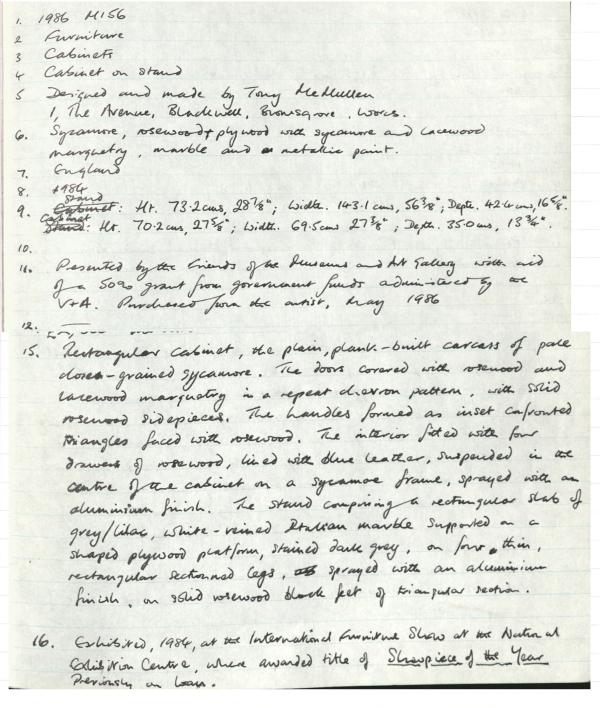 1. 1986 M156
2 Furniture
3 Cabinets
4 Cabinet on stand
5 Designed and made by Tony McMullen
1, The Avenue, Blackwell, Bromsgrove, Worcs.
6. Sycamore, rosewood & plywood with sycamore and lacewood
marquetry, marble and metallic paint.
7. England
8. 1984
Stand
9. Cabinet: Ht. 73.2cms, 28 7/8"; Width. 143.1cms, 56 3/8"; Depth. 42.4cms, 16 5/8".
Cabinet
Stand: Ht. 70.2cms, 27 5/8"; Width. 69.5cms 27 3/8"; Depth. 35.0cms, 13 3/4".
10.
11. Presented by the Friends of the Museums and Art Gallery with aid
of a 50% grant from government funds administered by the
V+A. Purchased from the artist, May 1986
12.
15. Rectangular cabinet, the plain, plank-built carcass of pale
close-grained sycamore. The doors covered with rosewood and
lacewood marquetry in a repeat chevron pattern, with solid
rosewood sidepieces. The handles formed as inset confronted
triangles faced with rosewood. The interior fitted with four
drawers of rosewood, lined with blue leather, suspended in the
centre of the cabinet on a sycamore frame, sprayed with an
aluminium finish. The stand comprising a rectangular slab of
grey/lilac, white-veined Italian marble supported on a
shaped plywood platform, stained dark grey, on four thin,
rectangular sectionned legs, sprayed with an aluminium
finish, on solid rosewood block feet of triangular section.
16. Exhibited, 1984, at the International Furniture Show at the National
Exhibition Centre, where awarded title of Showpiece of the Year
Previously on loan.